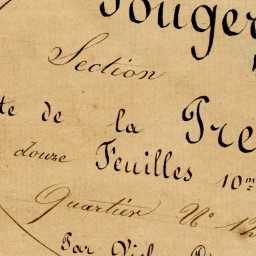 Fouger
Section
te de la Tre
douze Feuilles 10me
Quartier N° 12
Par